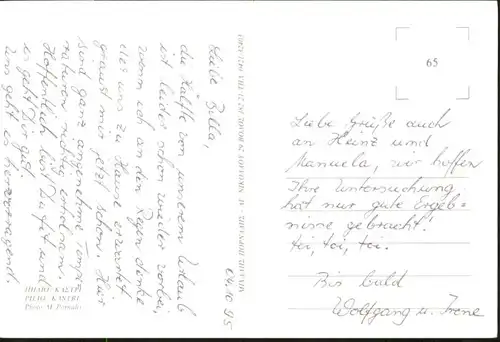 04.10.95
Liebe Zilla,
die Hälfte von unserem Urlaub
ist leider schon wieder vorbei,
wenn ich an den Regen denke
der uns zu Hause erwartet
graust mir jetzt schon. Hier
sind ganz angenehme Tempe-
raturen richtig erholsam.
Hoffentlich bist Du fit und
es geht Dir gut.
Uns geht es hervorragend.
65
Liebe Grüße auch
an Heinz und
Manuela, wir hoffen
Ihre Untersuchung
hat nur gute Ergeb-
nisse gebracht!
toi, toi, toi.
Bis bald
Wolfgang u. Irene